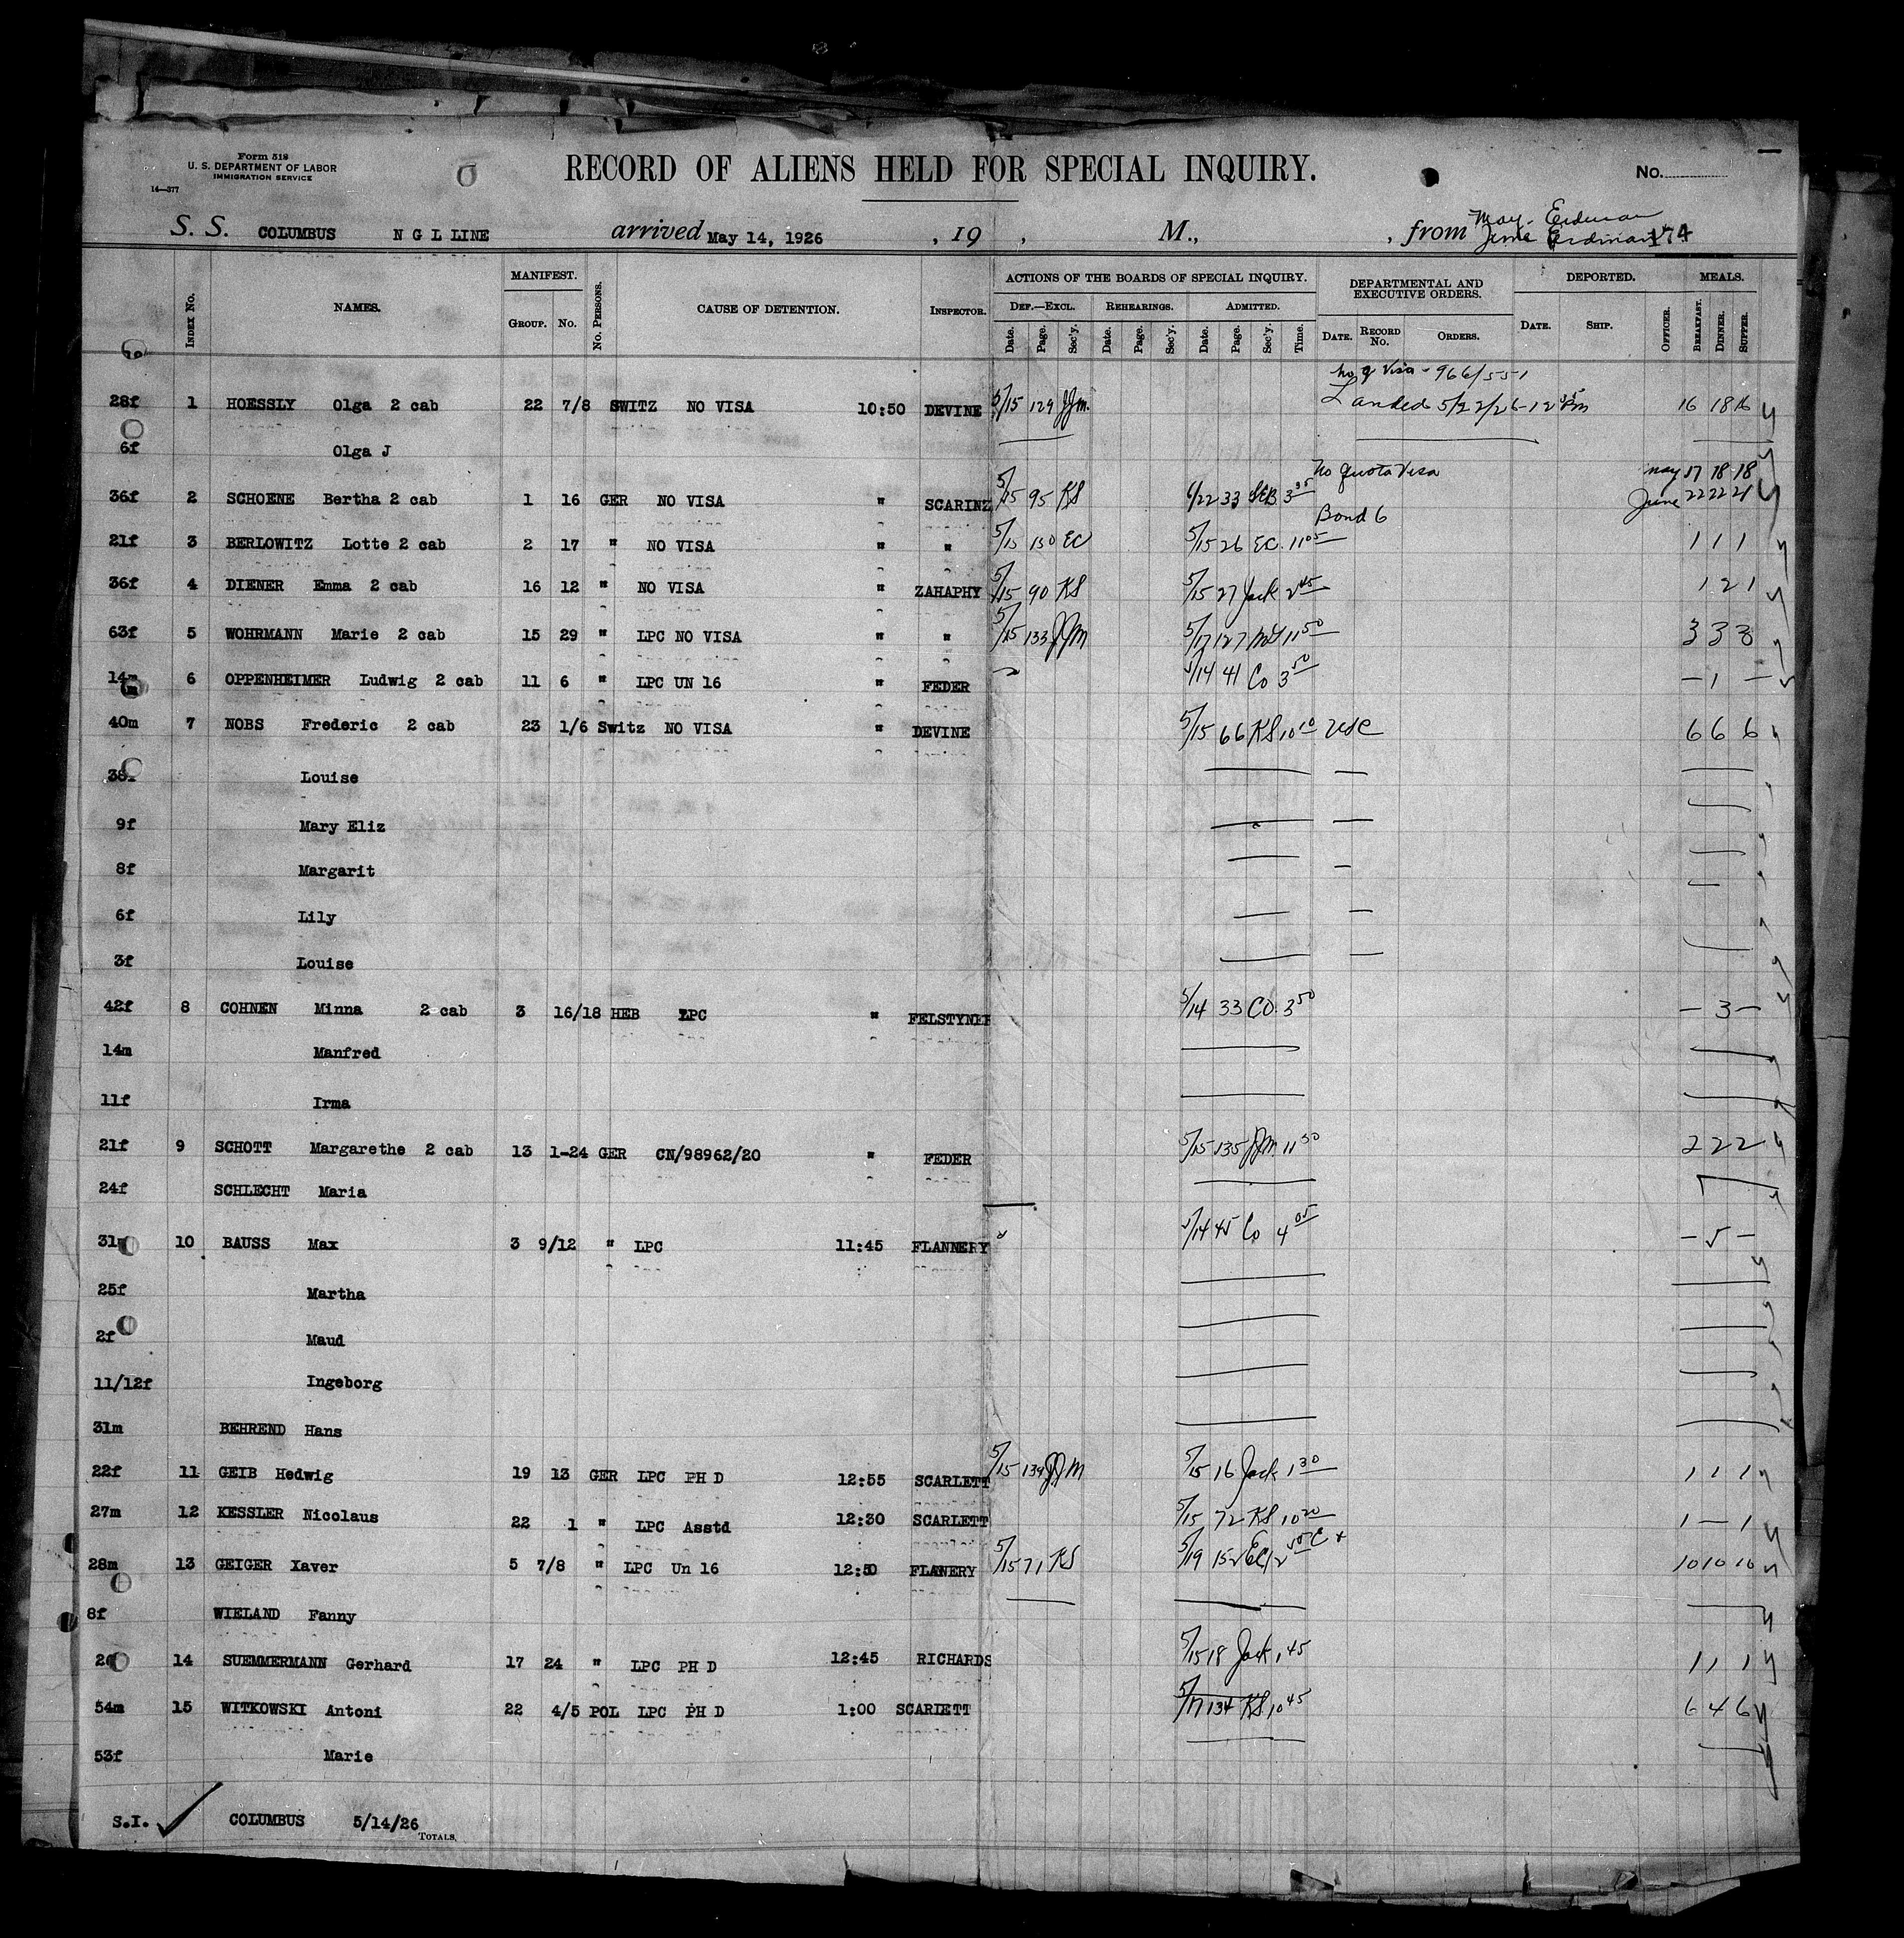 Form 518
U. S. DEPARTMENT OF LABOR
IMMIGRATION SERVICE
14—377
RECORD OF ALIENS HELD FOR SPECIAL INQUIRY.
No.
S. S. COLUMBUS N G L LINE arrived May 14, 1926 , 19 , M., , from May - Erdman
June Erdman 174
Index No. NAMES. MANIFEST. Group. No. No. Persons. CAUSE OF DETENTION. Inspector. ACTIONS OF THE BOARDS OF SPECIAL INQUIRY. Def.—Excl. Date. Page. Sec'y. Rehearings. Date. Page. Sec'y. Admitted. Date. Page. Sec'y. Time. DEPARTMENTAL AND EXECUTIVE ORDERS. Date. Record No. Orders. DEPORTED. Date. Ship. Officer. MEALS. Breakfast. Dinner. Supper.
No q Visa - 966/551
28f 1 HOESSLY Olga 2 cab 22 7/8 SWITZ NO VISA 10:50 DEVINE 5/15 129 JJM. Landed 5/22/26 - 12 PM 16 18 16
6f Olga J
No Quota Visa May 17 18 18
36f 2 SCHOENE Bertha 2 cab 1 16 GER NO VISA " SCARINZ 5/15 95 KS 6/22 33 SEB 3 35 June 22 22 21
Bond 6
21f 3 BERLOWITZ Lotte 2 cab 2 17 " NO VISA " " 5/15 130 EC 5/15 26 EC. 11 05 1 1 1
36f 4 DIENER Emma 2 cab 16 12 " NO VISA " ZAHAPHY 5/15 90 KS 5/15 27 Jack 2 45 1 2 1
63f 5 WOHRMANN Marie 2 cab 15 29 " LPC NO VISA " " 5/15 133 JJM 5/17 127 11 50 3 3 3
14m 6 OPPENHEIMER Ludwig 2 cab 11 6 " LPC UN 16 " FEDER 5/14 41 Co 3 50 — 1 —
40m 7 NOBS Frederic 2 cab 23 1/6 Switz NO VISA " DEVINE 5/15 66 KS 10 10 USC 6 6 6
38f Louise
9f Mary Eliz
8f Margarit
6f Lily
3f Louise
42f 8 COHNEN Minna 2 cab 3 16/18 HEB LPC " FELSTYNER 5/14 33 CO. 3 50 — 3 —
14m Manfred
11f Irma
21f 9 SCHOTT Margarethe 2 cab 13 1-24 GER CN/98962/20 " FEDER 5/15 135 JJM. 11 50 2 2 2
24f SCHLECHT Maria
31m 10 BAUSS Max 3 9/12 " LPC 11:45 FLANNERY 5/14 45 Co 4 05 — 5 —
25f Martha
2f Maud
11/12f Ingeborg
31m BEHREND Hans
22f 11 GEIB Hedwig 19 13 GER LPC PH D 12:55 SCARLETT 5/15 139 JJM 5/15 16 Jack 1 30 1 1 1
27m 12 KESSLER Nicolaus 22 1 " LPC Asstd 12:30 SCARLETT 5/15 72 KS 10 20 1 — 1
28m 13 GEIGER Xaver 5 7/8 " LPC Un 16 12:50 FLANERY 5/15 71 KS 5/19 152 EC 10 10 10
8f WIELAND Fanny
14 SUEMMERMANN Gerhard 17 24 " LPC PH D 12:45 RICHARDS 5/15 18 Jack 1 45 1 1 1
54m 15 WITKOWSKI Antoni 22 4/5 POL LPC PH D 1:00 SCARLETT 5/17 134 KS 10 45 6 4 6
53f Marie
S.I. COLUMBUS 5/14/26
Totals.